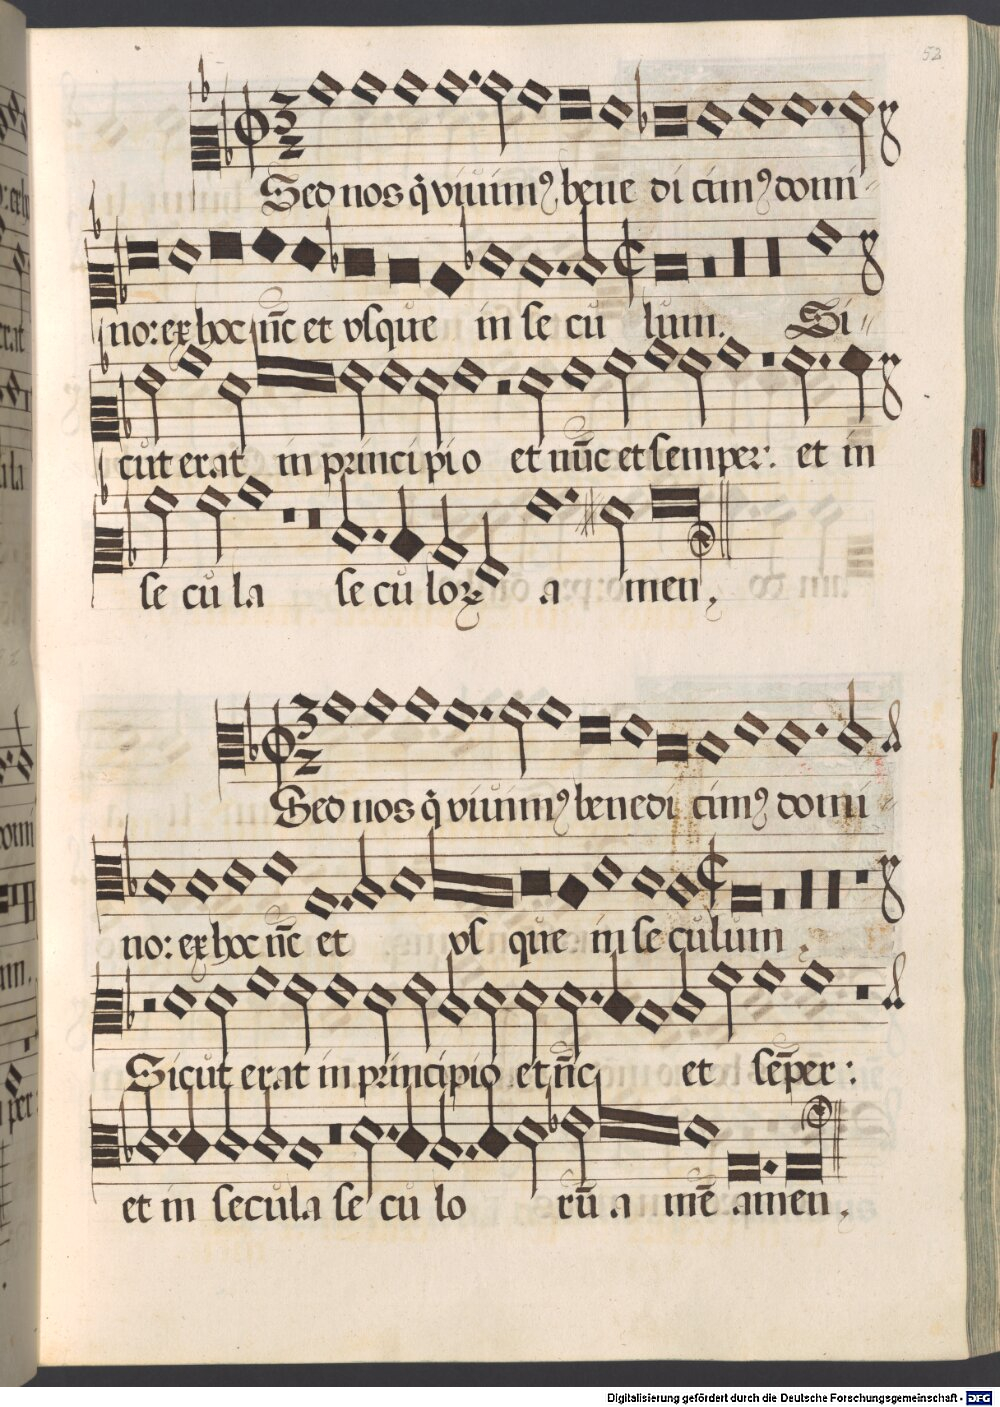 52
Sed nos q̃ viuimꝰ bene di cimꝰ domi
no: ex hoc nc̃ et vsque in se cu lum. Si
cut erat in principio et nũc et semper: et in
se cu la se cu loꝝ a men,
Sed nos q̃ viuimꝰ benedi cimꝰ domi
no: ex hoc nc̃ et vs que in se culum,
Sicut erat in principio et nc̃ et sẽper:
et in secula se cu lo rũ a mẽ amen,
Digitalisierung gefördert durch die Deutsche Forschungsgemeinschaft - DFG